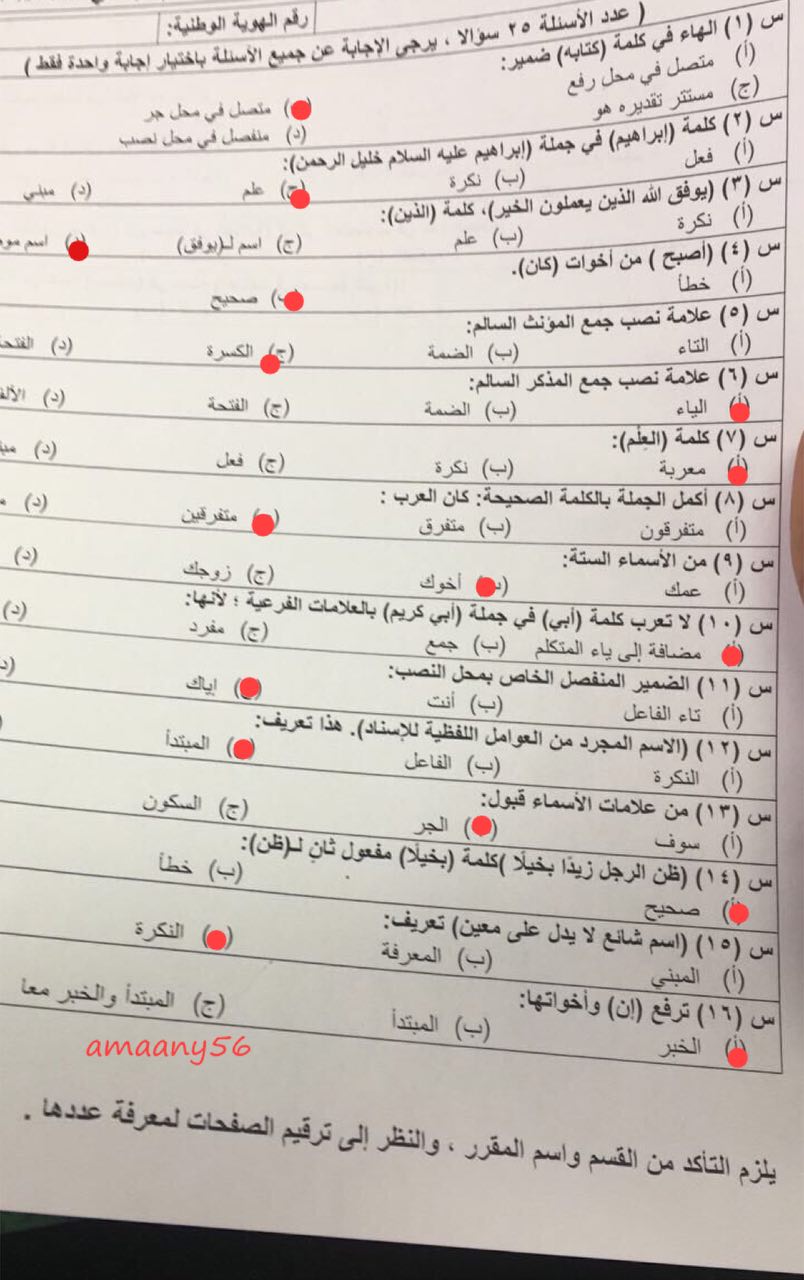 رقم الهوية الوطنية:
( عدد الأسئلة ٢٥ سؤالا ، يرجى الإجابة عن جميع الأسئلة باختيار إجابة واحدة فقط )
س (١) الهاء في كلمة (كتابه) ضمير:
(أ) متصل في محل رفع متصل في محل جر
(ج) مستتر تقديره هو (د) منفصل في محل نصب
س (٢) كلمة (إبراهيم) في جملة (إبراهيم عليه السلام خليل الرحمن):
(أ) فعل (ب) نكرة (ج) علم (د) مبني
س (٣) (يوفق الله الذين يعملون الخير)، كلمة (الذين):
(أ) نكرة (ب) علم (ج) اسم لـ(يوفق) (د) اسم
س (٤) (أصبح ) من أخوات (كان).
(أ) خطأ (ب) صحيح
س (٥) علامة نصب جمع المؤنث السالم:
(أ) التاء (ب) الضمة (ج) الكسرة (د) الفتحة
س (٦) علامة نصب جمع المذكر السالم:
(أ) الياء (ب) الضمة (ج) الفتحة (د)
س (٧) كلمة (العِلْم):
(أ) معربة (ب) نكرة (ج) فعل (د)
س (٨) أكمل الجملة بالكلمة الصحيحة: كان العرب :
(أ) متفرقون (ب) متفرق متفرقين (د)
س (٩) من الأسماء الستة:
(أ) عمك (ب) أخوك (ج) زوجك (د)
س (١٠) لا تعرب كلمة (أبي) في جملة (أبي كريم) بالعلامات الفرعية ؛ لأنها:
(أ) مضافة إلى ياء المتكلم (ب) جمع (ج) مفرد (د)
س (١١) الضمير المنفصل الخاص بمحل النصب:
(أ) تاء الفاعل (ب) أنت إياك
س (١٢) (الاسم المجرد من العوامل اللفظية للإسناد). هذا تعريف:
(أ) النكرة (ب) الفاعل المبتدأ
س (١٣) من علامات الأسماء قبول:
(أ) سوف الجر (ج) السكون
س (١٤) (ظن الرجل زيدًا بخيلًا )كلمة (بخيلًا) مفعول ثانٍ لـ(ظن):
(أ) صحيح (ب) خطأ
س (١٥) (اسم شائع لا يدل على معين) تعريف:
(أ) المبني (ب) المعرفة النكرة
س (١٦) ترفع (إن) وأخواتها:
(أ) الخبر (ب) المبتدأ (ج) المبتدأ والخبر معا
amaany56
يلزم التأكد من القسم واسم المقرر ، والنظر إلى ترقيم الصفحات لمعرفة عددها .